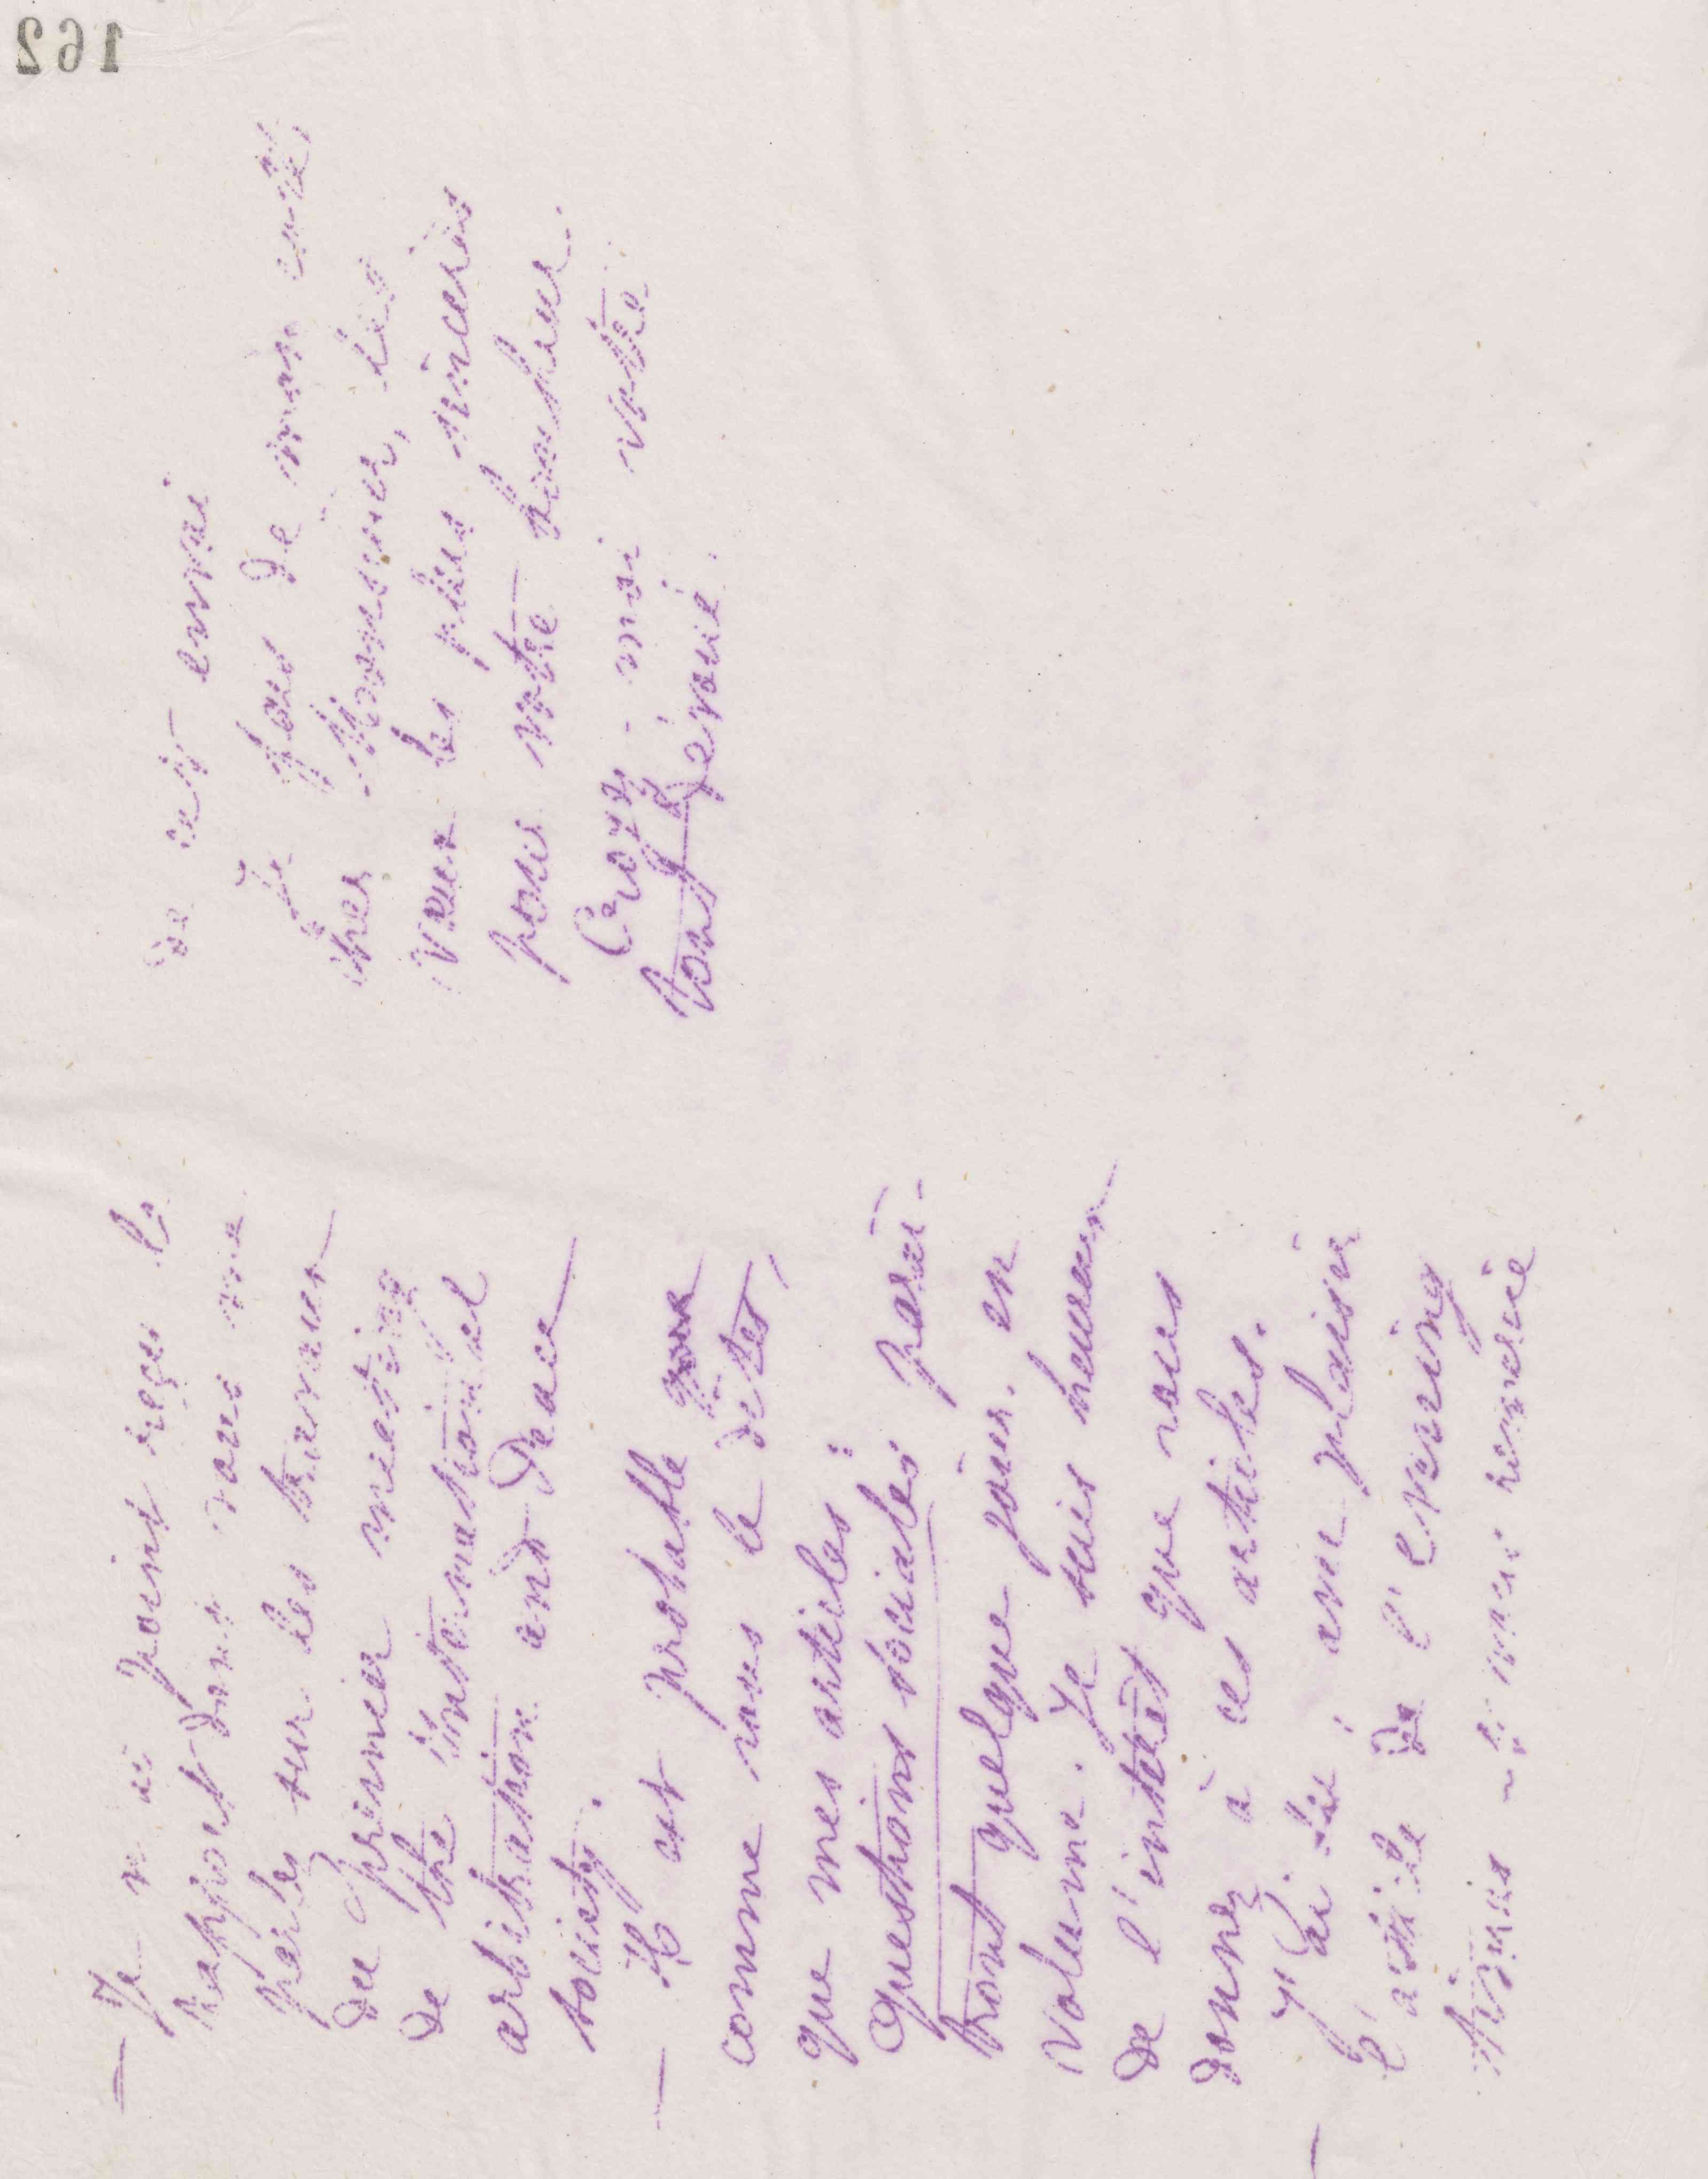 162
— Je n'ai point reçu le
rapport dont vous me
parlez sur les travaux
du premier meeting
de the international
arbitration and Peace
society.
— Il est probable
comme vous le dites,
que mes articles :
Questions sociales paraî-
tront quelque jour en
volume. Je suis heureux
de l'intérêt que vous
donnez à ces articles.
— J'ai lu, avec plaisir
l'article de l'evening
et vous remercie
de cet envoi
Je fais de mon côté,
cher Monsieur, les
vœux les plus sincères
pour votre bonheur.
Croyez-moi votre
tout dévoué.